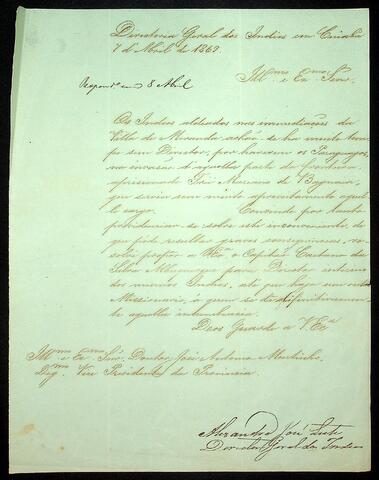 Directoria Geral dos Indios em Cuiabá
7 de Abril de 1869.
Respondº em 8 Abril
Illmo e Exmo Senr.
Os Indios aldeados nas immediações da
Villa de Miranda achão-se ha muito tem
po sem Director, por haverem os Paraguayos,
na invasão d'aquella parte da fronteira
aprisionado Frei Mariano de Bagnaia,
que servia com muito aproveitamento aquel
le cargo. Convindo por tanto
providenciar-se sobre este inconveniente, de
que póde resultar graves consequencias, 
proponho a VExa o Capitão Caetano da
Silva Albuquerque para Director interino
dos mesmos Indios, até que haja um outro
Missionario, a quem se dê definitivamente
aquella incumbencia.
Deos Guarde a VExa
Illmo e Exmo Senr. Doutor José Antonio Murtinho
Digmo Vice Presidente da Provincia.
Alexandre José Leite
Director Geral dos Indios